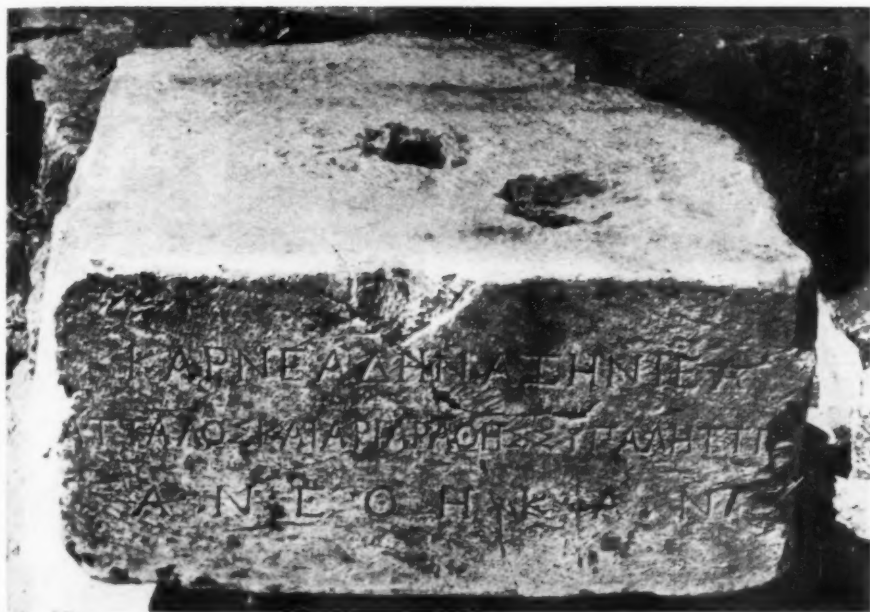 ΚΑΡΝΕΑΔΗΝΑΖΗΝΙΕΑ
ΑΤΤΑΛΟΣΚΑΙΑΡΙΑΡΑΘΗΣΣΥΠΑΛΗΤΤΙ
ΑΝΕΘΗΚΑΝ